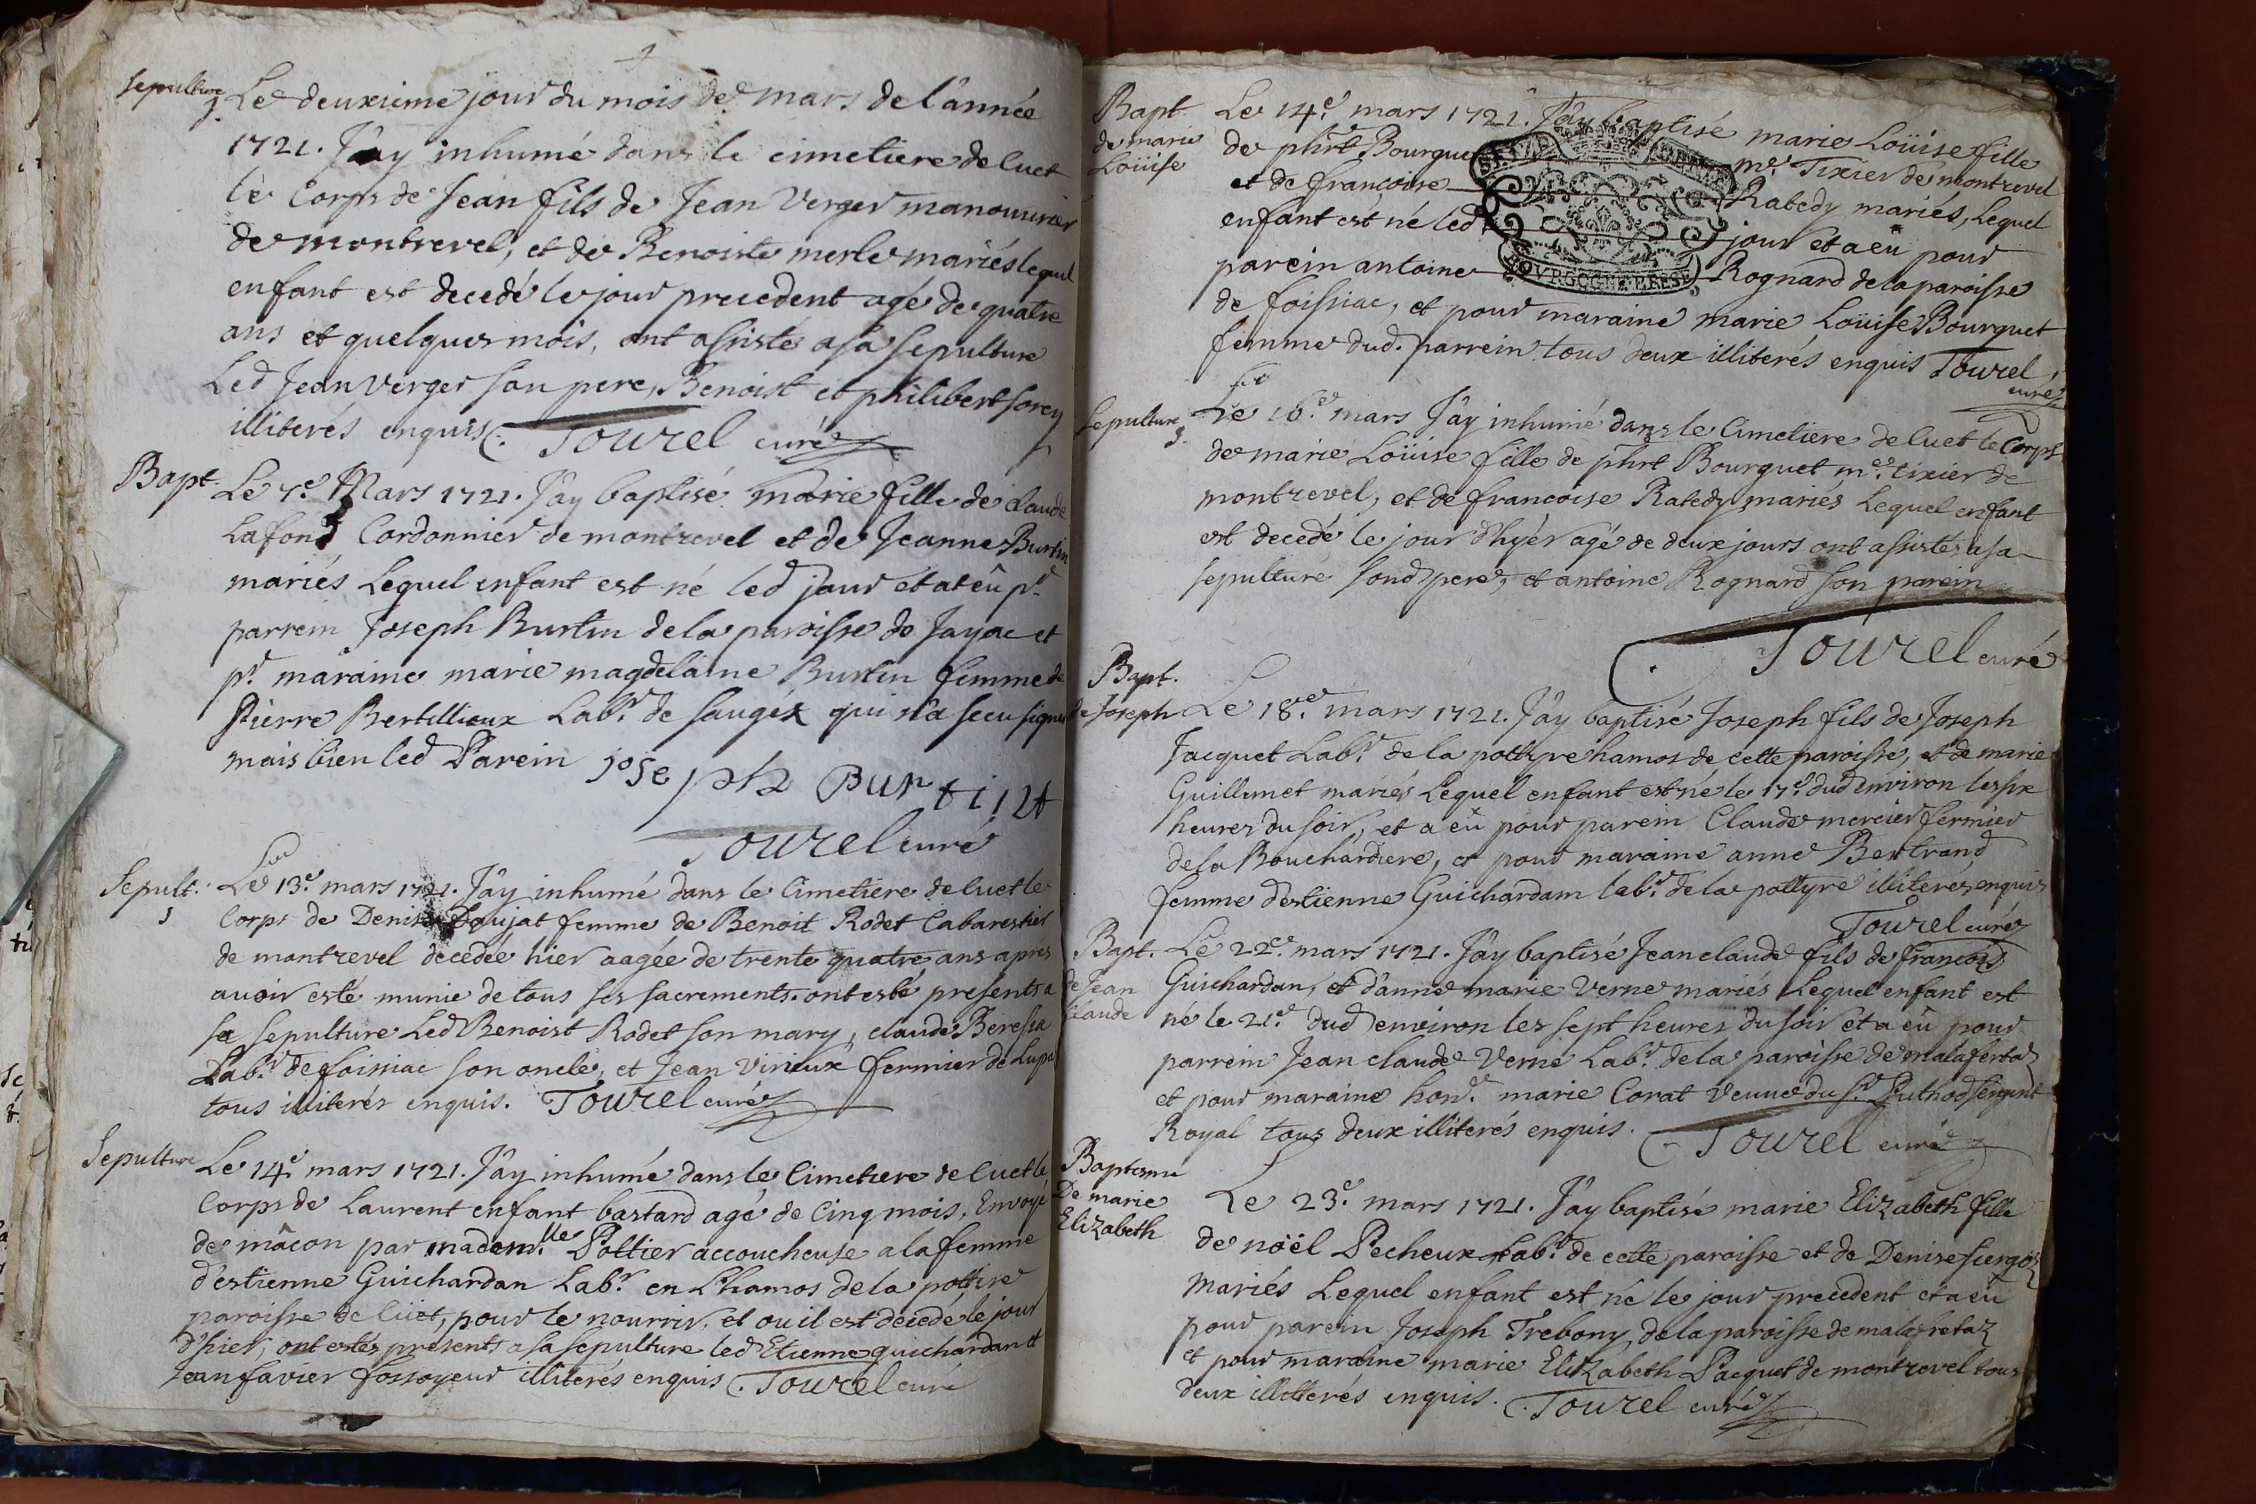 Sepulture
Le deuxieme jour du mois de mars de l'année
1721. J'ây inhumé dans le cimetiere de luet
le Corps de Jean fils de Jean Verger manouvrier
de montrevel, et de Benoiste merle mariés lequel
enfant est decedé le jour precedent agé de quatre
ans et quelques mois, ont assisté a sa sepulture
Led Jean Verger son pere, Benoist et philibert sorey
illiterés enquis. Tourel curé
Bapt. Le 7.e Mars 1721. J'ây baptisé marie fille de claude
Lafond Cordonnier de montrevel et de Jeanne Burtin
mariés Lequel enfant est né led jour et at eû p.r
parrein Joseph Burtin de la paroisse de Jayac et
p.r maraine marie magdelaine Burtin femme de
Pierre Bertillieux Lab.r de saugéx qui n'a sceu signer
mais bien led Parein Joseph Burtint
Tourel curé
Sepult. Le 13.e mars 1721. J'ây inhumé dans le Cimetiere de luet le
Corps de Denise Doujat femme de Benoit Rodet Cabarestier
de montrevel decedée hier aagée de trente quatre ans apres
avoir esté munie de tous ses sacrements. ont esté presents a
sa sepulture Led Benoist Rodet son mary, claude Beressa
Lab.r de foissiac son oncle, et Jean Virieux fermier de
tous illiterés enquis. Tourel curé
Sepulture Le 14.e mars 1721. J'ây inhumé dans le Cimetiere de luet le
Corps de Laurent enfant bastard agé de Cinq mois, Envoyé
de mâcon par madem.lle Pottier accoucheuse a la femme
d'estienne Guichardan Lab.r en Lhamos de la pottire
paroisse de luet, pour le nourrir, et ou il est decedé le jour
d'hier, ont estés presents a sa sepulture led Etienne guichardan et
Jean favier fossoyeur illiterés enquis. Tourel curé
Bapt
de marie
Loüise
Le 14.e mars 1721. J'ây baptisé marie Loüise fille
de phrt Bourguet m.e Tixier de montrevel
et de francoise Ratedy mariés, Lequel
enfant est né led jour et a eü pour
parein antoine Rognard de la paroisse
de foissiac, et pour maraine marie Loüise Bourguet
femme dud. parrein tous deux illiterés enquis Tourel
curé
BOVRGOGNE BRESSE
Sepulture
Le 16.e mars J'ây inhumé dans le Cimetiere de luet le Corps
de marie Loüise fille de phrt Bourguet m.e tixier de
montrevel, et de francoise Ratedy mariés Lequel enfant
est decedé le jour d'hyér agé de deux jours ont assistés a sa
sepulture sond pere, et antoine Rognard son parein
Tourel curé
Bapt.
de Joseph
Le 18.e mars 1721. J'ây baptisé Joseph fils de Joseph
Jacquet Lab.r de la pottyre hamos de cette paroisse, et de marie
Guillemet mariés Lequel enfant est né le 17.e dud environ les six
heures du soir, et a eû pour parein Claude mercier fermier
de la Bouchardiere, et pour maraine anne Bertrand
femme d'estienne Guichardam lab.r de la pottyre illiterés enquis
Tourel curé
Bapt.
de Jean
Claude
Le 22.e mars 1721. J'ây baptisé Jean claude fils de francois
Guichardan, et d'anne marie Verne mariés Lequel enfant est
né le 21.e dud environ les sept heures du soir et a eû pour
parrein Jean claude Verne Lab.r de la paroisse de malafertaz
et pour maraine hon.e marie Corat Veuve du s.r Puthod sergent
Royal tous deux illiterés enquis. Tourel curé
Baptesme
De marie
Elizabeth
Le 23.e mars 1721. J'ây baptisé marie Elizabeth fille
de noël Pecheux Lab.r de cette paroisse et de Denise
mariés Lequel enfant est né le jour precedent et a eü
pour parein Joseph Trebony de la paroisse de malafretaz
et pour maraine marie Elizabeth Pacquet de montrevel tous
deux illitterés enquis. Tourel curé